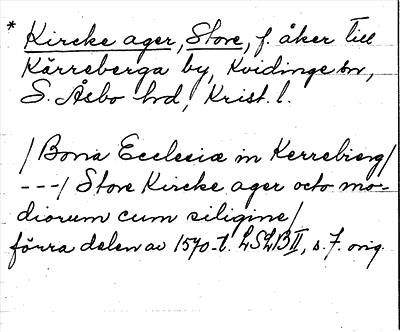 * Kircke ager, Store, f. åker till
Kärreberga by, Kvidinge sn,
S. Åsbo hd, Krist. l.
/Bona Ecclesiæ in Kerrebierg/
---/ Store Kircke ager octo mo-
diorum cum siligine/
förra delen av 1570-t. LSLB II, s. 7. orig.